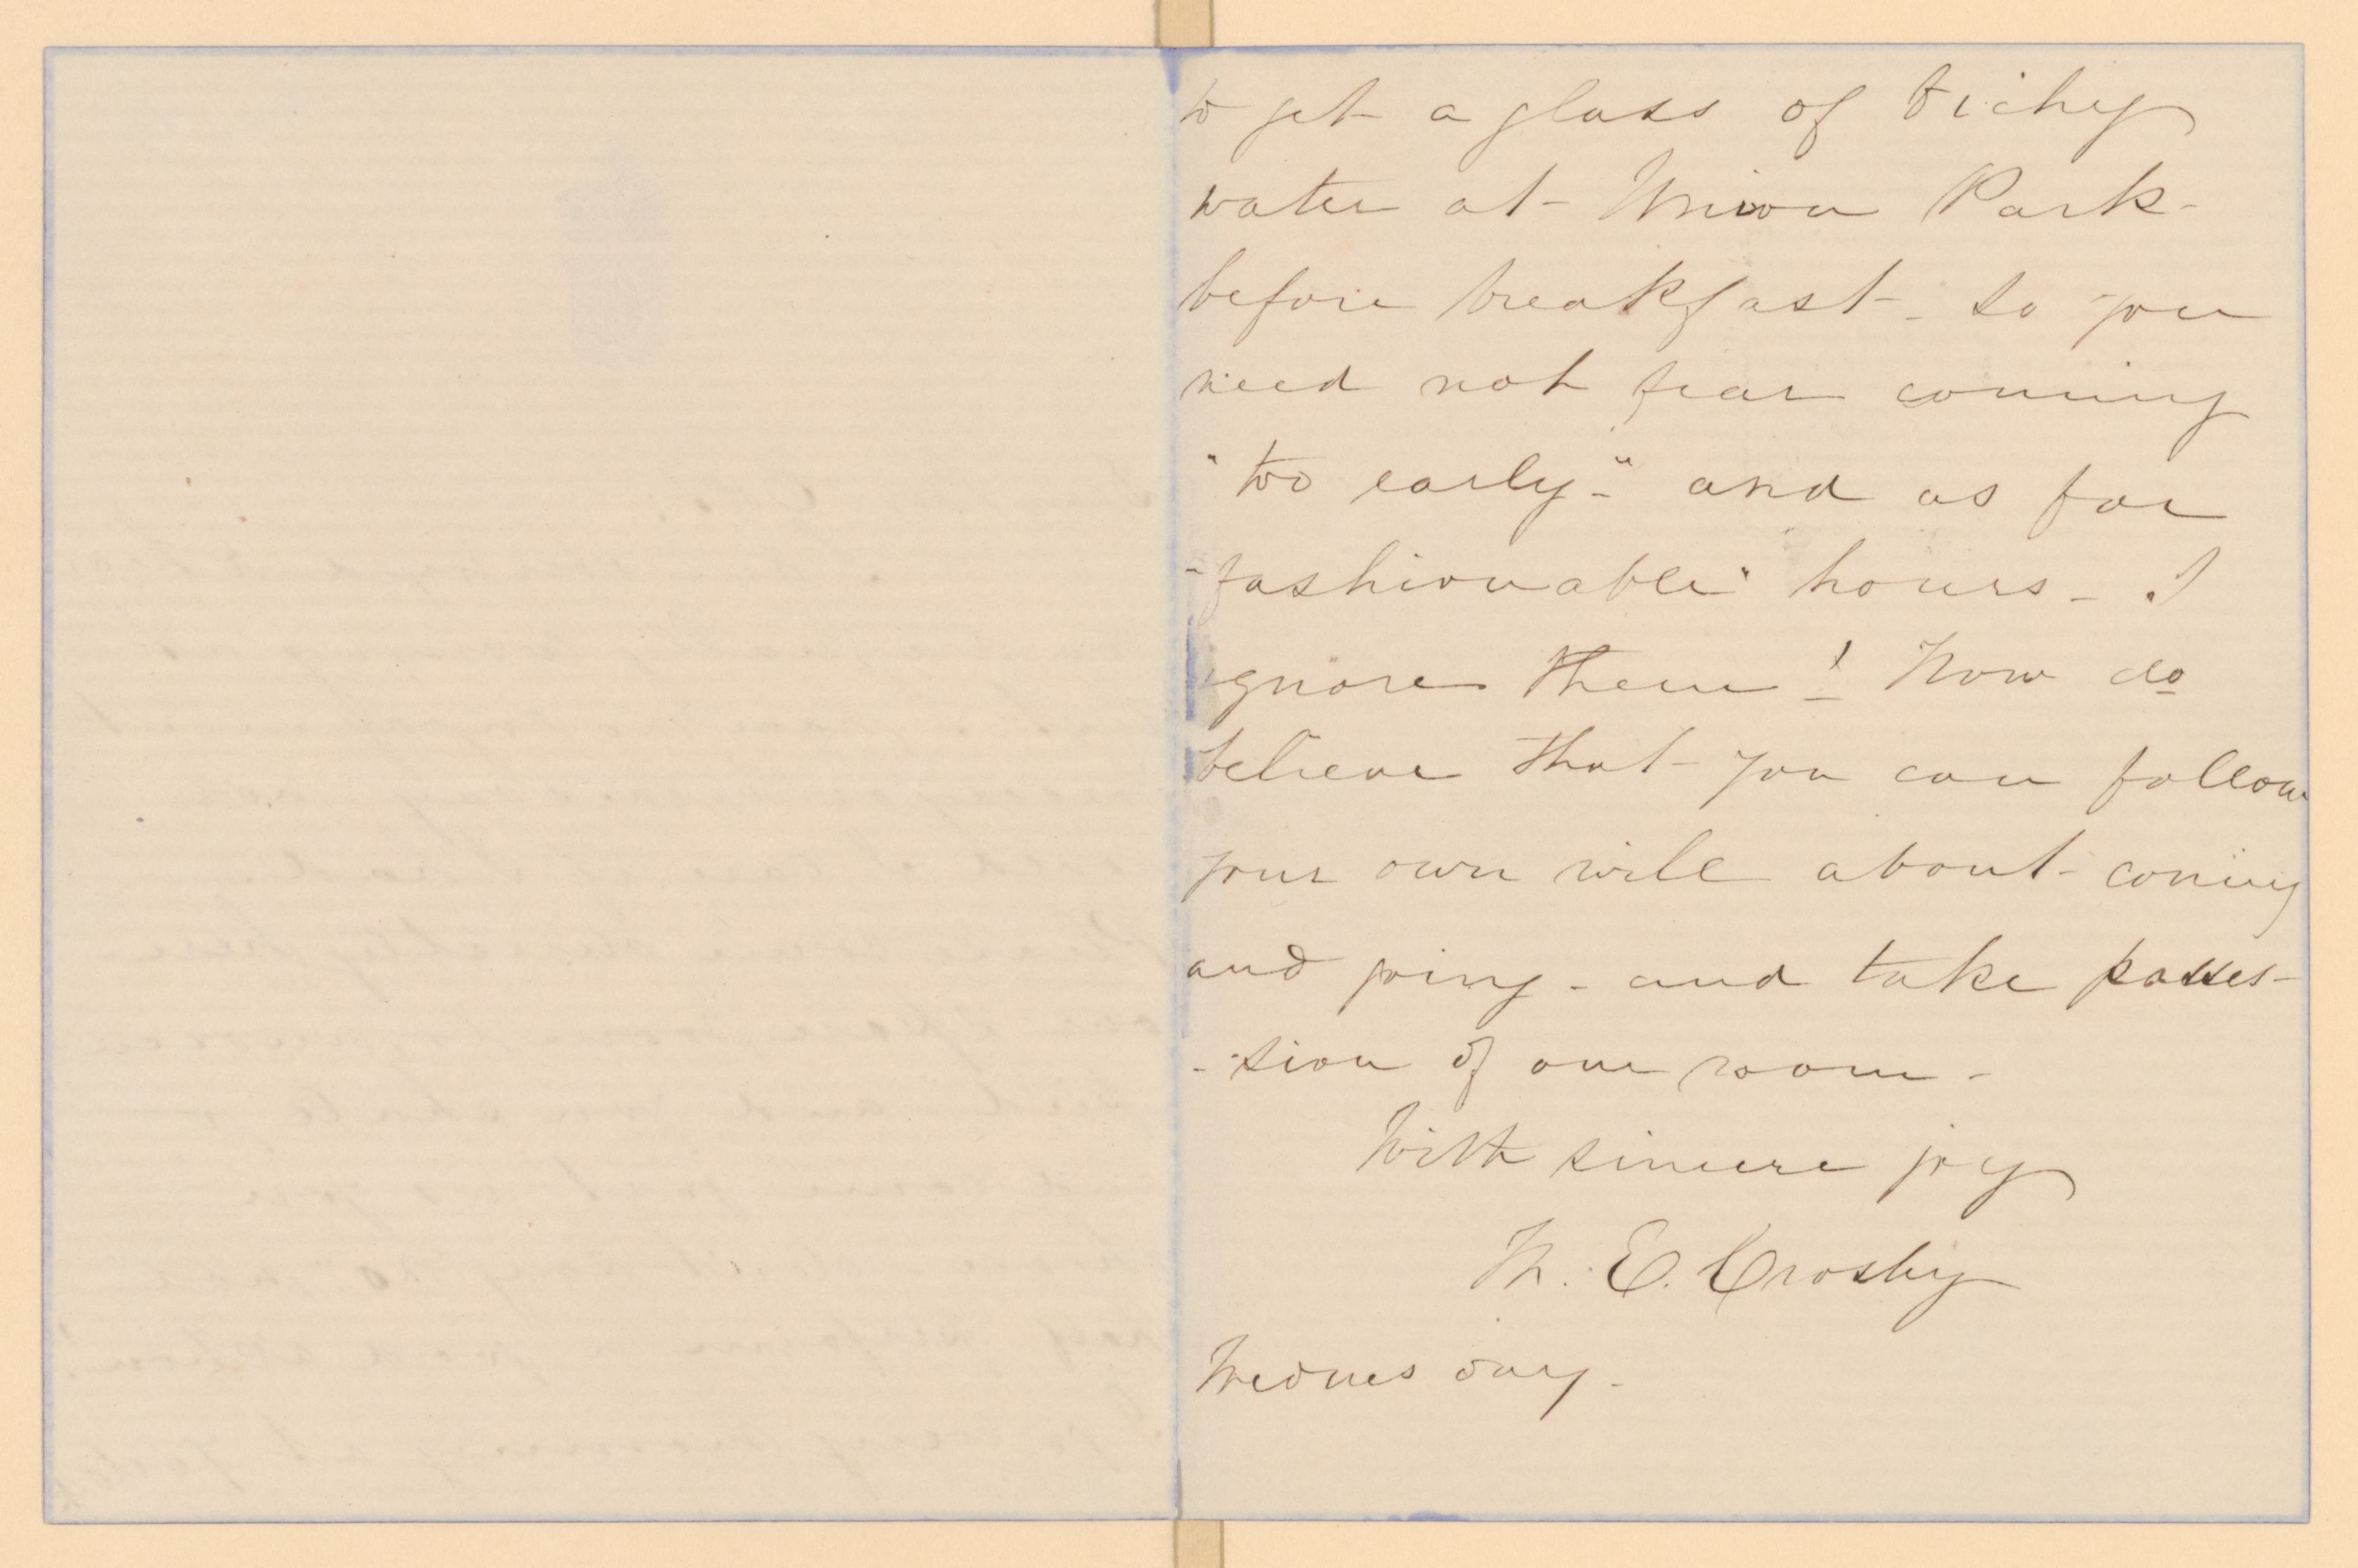 to get a glass of Vichy
water at Union Park -
before breakfast - so you
need not fear coming
"too early -" and as for
"fashionable" hours - I
ignore them! Now do
believe that you can follow
your own will about coming
and going - and take posses-
-sion of our room -
With sincere joy
M. E. Crosby
Wednesday -